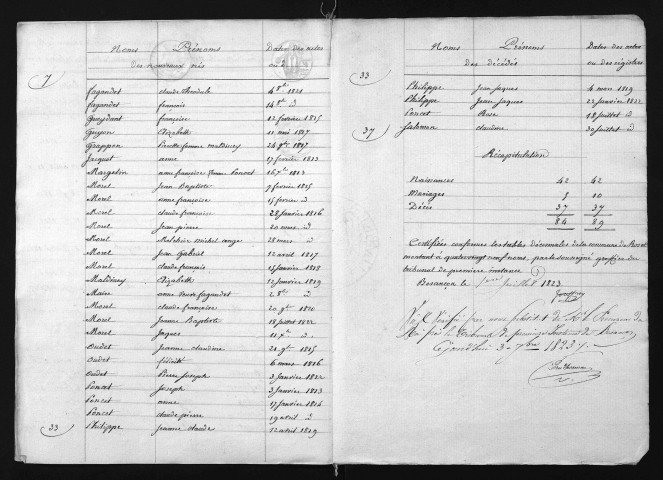 Noms Prénoms Dates des actes
des nouveaux nés ou
7
fagandet claude Theodule 4 8bre 1821
fagandet françois 14 8bre d
Gueydant françoise 12 fevrier 1815
Guyon Elizabeth 11 mai 1817
Grappon femme maldiney 24 9bre 1815
Jacquot anne 17 fevrier 1813
Margelin anne françoise femme Poncet 16 7bre 1813
Morel Jean Baptiste 9 fevrier 1815
Morel anne françoise 15 fevrier d
Morel claude françoise 28 janvier 1816
Morel Jean pierre 20 mars d
Morel Melchior michel ange 28 mars d
Morel Jean Gabriel 12 avril 1817
Morel claude françois 14 janvier 1818
Maldiney Elizabeth 12 janvier 1819
Maire anne fagandet 2 8bre d
Morel claude françoise 20 9bre 1820
Morel Jeanne Baptiste 18 juillet 1822
Morel Jaques 11 7bre d
Oudet Jeanne claudine 21 9bre 1815
Oudet félicité 6 mars 1816
Oudet Pierre Joseph 3 janvier 1822
Poncet Joseph 3 janvier 1813
Poncet anne 17 janvier 1814
Poncet claude pierre 19 avril d
33 Philippe Jeanne claude 12 avril 1819
Noms Prénoms Dates des actes
des décédés ou des régistres
33
Philippe Jean Jaques 4 mars 1819
Philippe Jean Jaques 22 janvier 1822
Poncet Rose 18 juillet d
37 Salomon claudine 30 juillet d
Récapitulation
Naissances 42 42
Mariages 5 10
Décès 37 37
84 89
Certifiées conformes les tables décennales de la commune de
montant à quatre vingt neuf noms, par le soussigné greffier du
tribunal de premiere instance
Besançon le 1er juillet 1823
Vu & Vérifié par nous
par le Tribunal de premiere instance de Besançon
Ce jourd'hui 3 7bre 1823